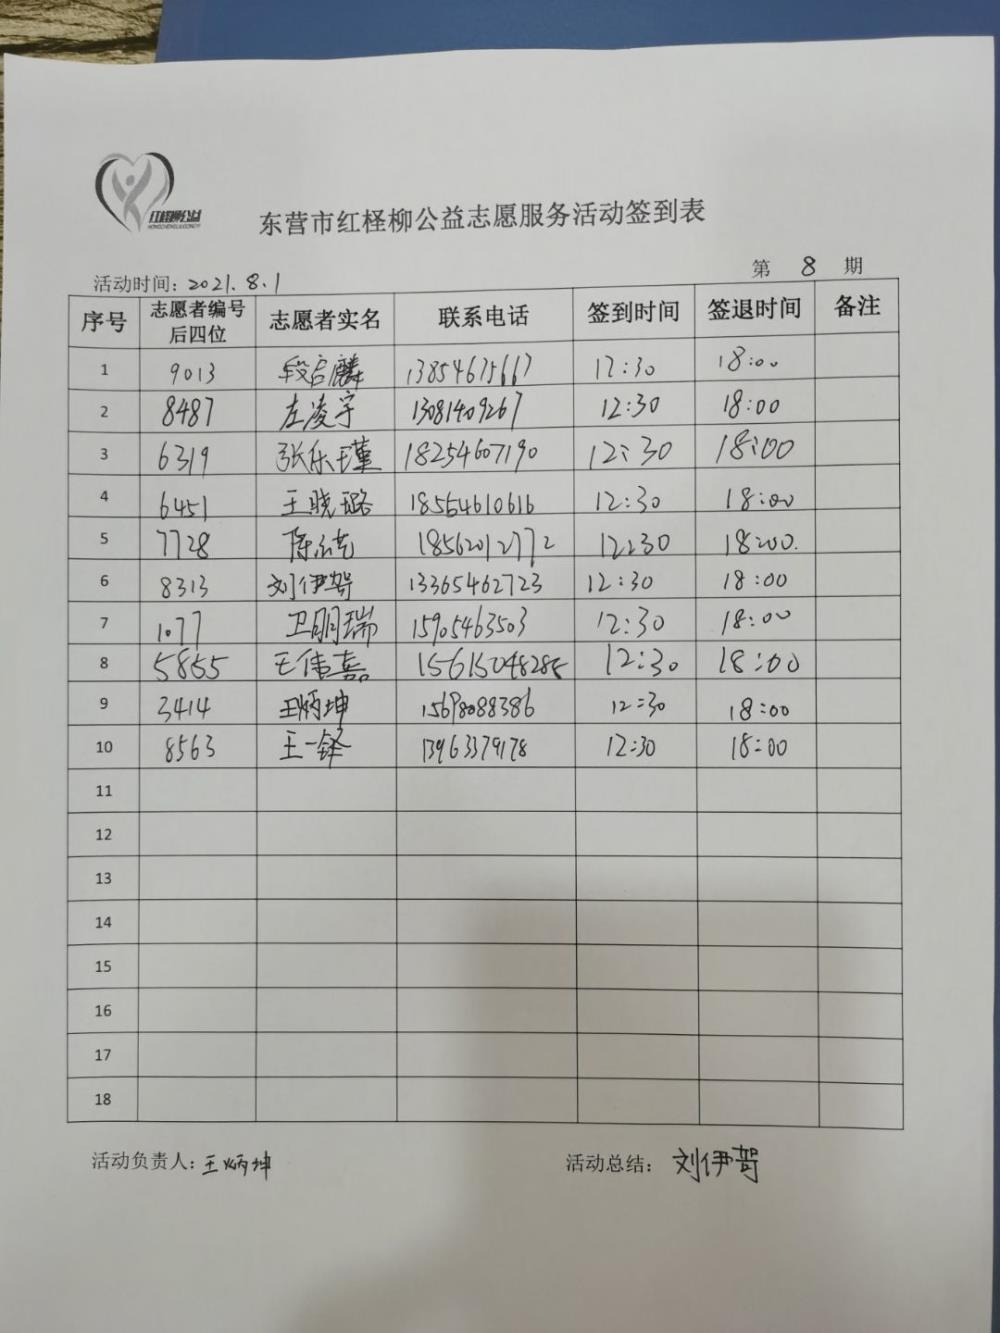 红柽柳公益
东营市红柽柳公益志愿服务活动签到表
活动时间：2021.8.1 第 8 期
序号 志愿者编号后四位 志愿者实名 联系电话 签到时间 签退时间 备注
1 9013 段启麟 13854675667 12:30 18:00
2 8487 左凌宇 13081409267 12:30 18:00
3 6319 张乐瑾 18254607190 12:30 18:00
4 6451 王晓璐 18554610616 12:30 18:00
5 7728 陈 18562012772 12:30 18:00
6 8313 刘伊贺 13365462723 12:30 18:00
7 1077 卫朋瑞 15905463503 12:30 18:00
8 5855 王伟嘉 12:30 18:00
9 3414 王炳坤 15698088386 12:30 18:00
10 8563 王一铎 13963379178 12:30 18:00
11
12
13
14
15
16
17
18
活动负责人：王炳坤 活动总结：刘伊贺